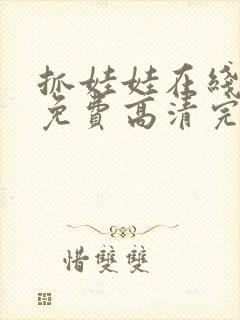 抓娃娃在线
免费高清完
惜双双